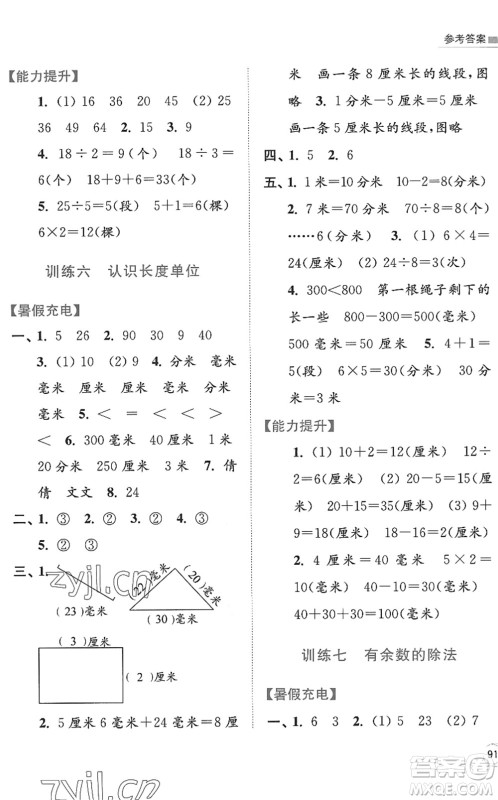 参考答案
【能力提升】
1. (1) 16 36 20 45 (2) 25
36 49 64 2. 15 3. 9
4. 18÷2=9(个) 18÷3=
6(个) 18+9+6=33(个)
5. 25÷5=5(段) 5+1=6(棵)
6×2=12(棵)
训练六 认识长度单位
【暑假充电】
一、1. 5 26 2. 90 30 9 40
3. (1) 10 (2) 9 4. 分米 毫米
毫米 厘米 厘米 毫米 厘米
毫米 5. < = < < >
< 6. 300 毫米 40 厘米 1 米
20 分米 80 厘米 5 毫米 7. 倩
倩 文文 8. 24
二、1. ③ 2. ③ 3. ② 4. ②
5. ② 6. ②
三、1.
(23)毫米
(22)毫米
(20)毫米
(30)毫米
(3)厘米
(2)厘米
2. 5 厘米+24 毫米+24 毫米=8 厘
米 画一条 8 厘米长的线段，图
略 3. 1 米-5 厘米=5 厘米
画一条 5 厘米长的线段，图略
四、1. 5 2. 6
五、1. 1 米=10 分米 10-2=8(分米)
2. 7 米=70 分米 70÷8=8(次)
……6(分米) 3. (1) 6×4=
24(厘米) (2) 24÷8=3(厘米)
4. 300<800 第一根绳子剩下的
长一些 800-300=500(毫米)
500 毫米=5 分米 5. 4+1=
5(段) 6×5=30(分米) 30 分
米=3 米
【能力提升】
1. (1) 10+2=12(厘米) 12÷
2=6(厘米) (2) 30-10=
20(厘米) 20÷2=10(厘米)
20+10=30(厘米) (3) 9+
9=18(厘米) 18-16=2(厘米)
2. 4 厘米=40 毫米 5×2=
10(毫米) 40-10=30(毫米)
40+30+30=100(毫米)
训练七 有余数的除法
【暑假充电】
一、1. 6 3 2. (1) 5 23 (2) 7
91
zyjl.cn
zyjl.cn
答案圈
MXQE.COM